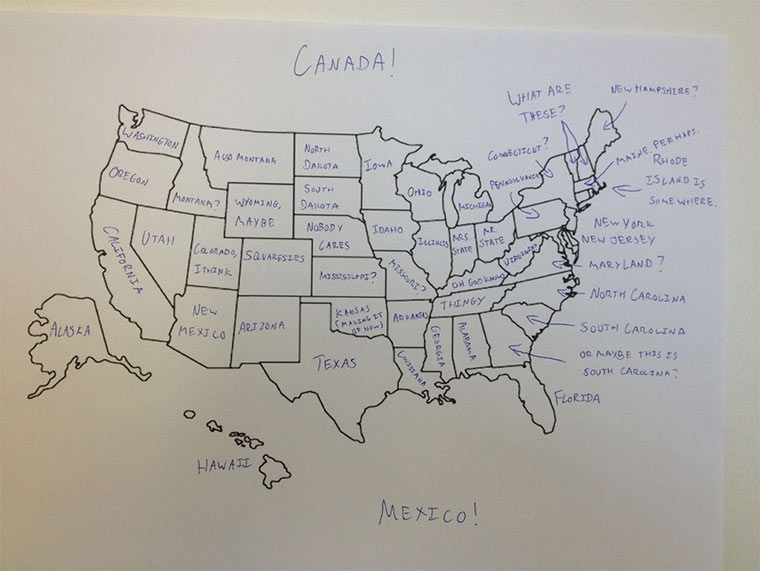 CANADA!
WHAT ARE
THESE?
NEW HAMPSHIRE?
CONNECTICUT?
MAINE, PERHAPS.
RHODE
ISLAND IS
SOMEWHERE.
PENNSYLVANIA
WASHINGTON
OREGON
MONTANA?
ALSO MONTANA
NORTH
DAKOTA
IOWA
OHIO
MICHIGAN
WYOMING,
MAYBE
SOUTH
DAKOTA
CALIFORNIA
UTAH
COLORADO,
I THINK
SQUARESIRS
NOBODY
CARES
IDAHO
ILLINOIS
MRS.
STATE
MR.
STATE
VIRGINIA
NEW YORK
NEW JERSEY
MARYLAND?
MISSISSIPPI?
MISSOURI?
OH GOD KNOWS
THINGY
NORTH CAROLINA
NEW
MEXICO
ARIZONA
KANSAS
(MAKING IT
UP NOW)
ARKANSAS
SOUTH CAROLINA
OR MAYBE THIS IS
SOUTH CAROLINA?
ALASKA
TEXAS
LOUISIANA
GEORGIA
ALABAMA
FLORIDA
HAWAII
MEXICO!